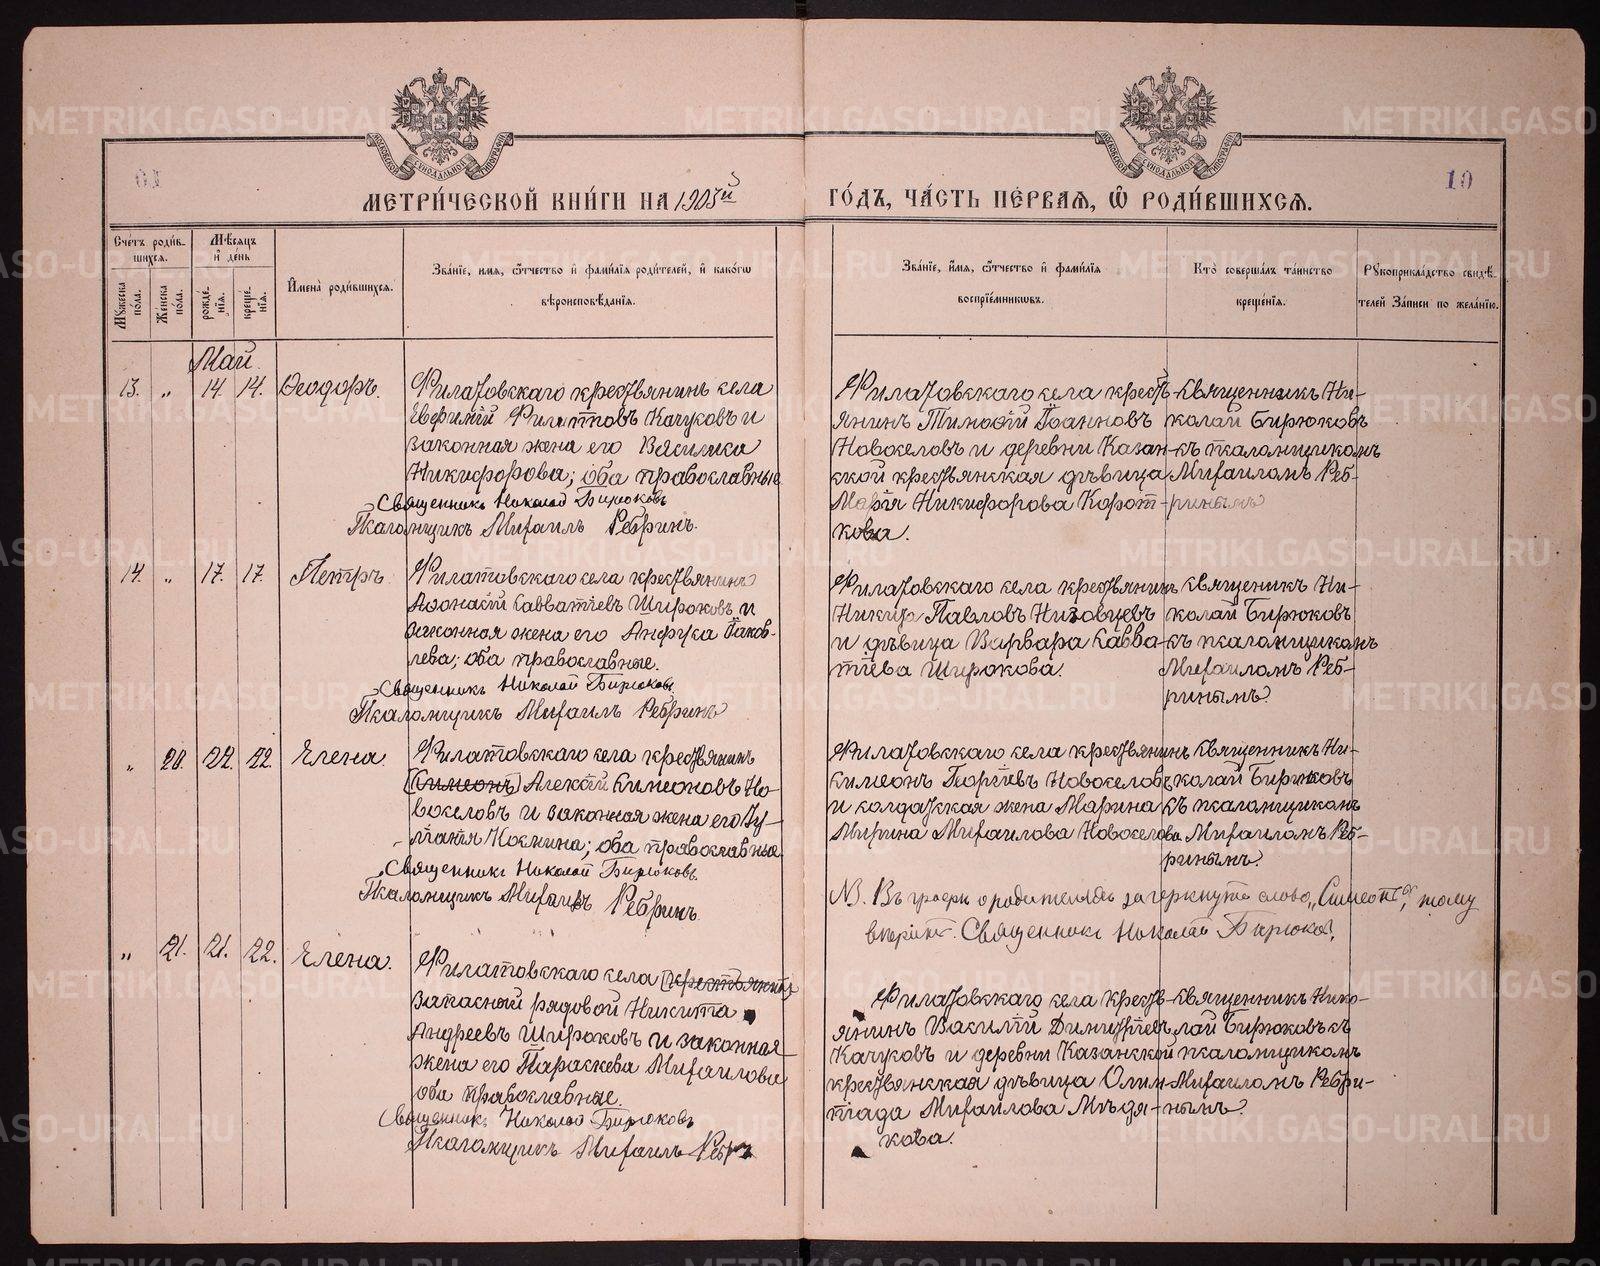 10
МЕТРИ́ЧЕСКОЙ КНИ́ГИ НА 1903й
ГО́ДЪ, ЧА́СТЬ ПЕ́РВАѦ, Ѿ РОДИ́ВШИХСѦ.
Сче́тъ роди́в-
шихсѧ.
Мꙋ́жеска по́ла.
Же́нска по́ла.
Мѣ́сѧцъ и де́нь
рожде́нїѧ.
креще́нїѧ.
И҆мена̀ роди́вшихсѧ.
Зва́нїе, и҆мѧ, ѻ҆́тчество и҆ фами́лїѧ роди́телей, и҆ како́гѡ
вѣроисповѣ́данїѧ.
Зва́нїе, и҆́мѧ, ѻ҆́тчество и҆ фами́лїѧ
воспрїе́мниковъ.
Кто̀ соверша́лъ та́инство
креще́нїѧ.
Рꙋкоприкла́дство свидѣ́-
телей За́писи по жела́нїю.
Май.
13. „ 14. 14. Ѳеодоръ.
Филатовскаго крестьянинъ села
Евфимій Филатовъ Качуковъ и
законная жена его Василиса
Никифорова; оба православные
Священникъ Николай Бирюковъ
Псаломщикъ Михаилъ Ребринъ.
Филатовскаго села кресть-
янинъ Тимоѳей Іоанновъ
Новоселовъ и деревни Казан-
ской крестьянская дѣвица
Марія Никифорова Корот-
кова.
Священникъ Ни-
колай Бирюковъ
съ псаломщикомъ
Михаиломъ Реб-
ринымъ
14. „ 17. 17. Петръ.
Филатовскаго села крестьянинъ
Аѳонасій Савватіевъ Широковъ и
законная жена его Анфуса Іаков-
лева; оба православные.
Священникъ Николай Бирюковъ.
Псаломщикъ Михаилъ Ребринъ
Филатовскаго села крестьянинъ
Никита Павловъ Низовцевъ
и дѣвица Варвара Савва-
тіева Широкова.
Священникъ Ни-
колай Бирюковъ
съ псаломщикомъ
Михаиломъ Реб-
ринымъ.
„ 20. 22. 22. Елена.
Филатовскаго села крестьянинъ
(Симеонъ) Алексій Симеоновъ Но-
воселовъ и законная жена его
Космина; оба православные.
Священникъ Николай Бирюковъ.
Псаломщикъ Михаилъ Ребринъ.
Филатовскаго села крестьянинъ
Симеонъ Новоселовъ
и солдатская жена Марина
Михаилова Новоселова
Священникъ Ни-
колай Бирюковъ
съ псаломщикомъ
Михаиломъ Реб-
ринымъ.
NB. Въ графѣ о родителяхъ зачеркнуто слово „Симеонъ“, тому
вѣрить. Священникъ Николай Бирюковъ.
„ 21. 21. 22. Елена.
Филатовскаго села (крестьянинъ)
запасный рядовой Никита
Андреевъ Широковъ и законная
жена его Параскева Михаилова
оба православные.
Священникъ Николай Бирюковъ
Псаломщикъ Михаилъ Ребринъ
Филатовскаго села кресть-
янинъ Василій Димитріевъ
Качуковъ и деревни Казанской
крестьянская дѣвица Олим-
піада Михаилова Мѣдя-
кова.
Священникъ Нико-
лай Бирюковъ съ
псаломщикомъ
Михаиломъ Ребри-
нымъ.
METRIKI.GASO-URAL.RU